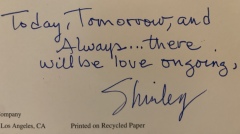 Today, Tomorrow, and
Always...there
will be love ongoing,
Shirley
ompany
Los Angeles, CA Printed on Recycled Paper